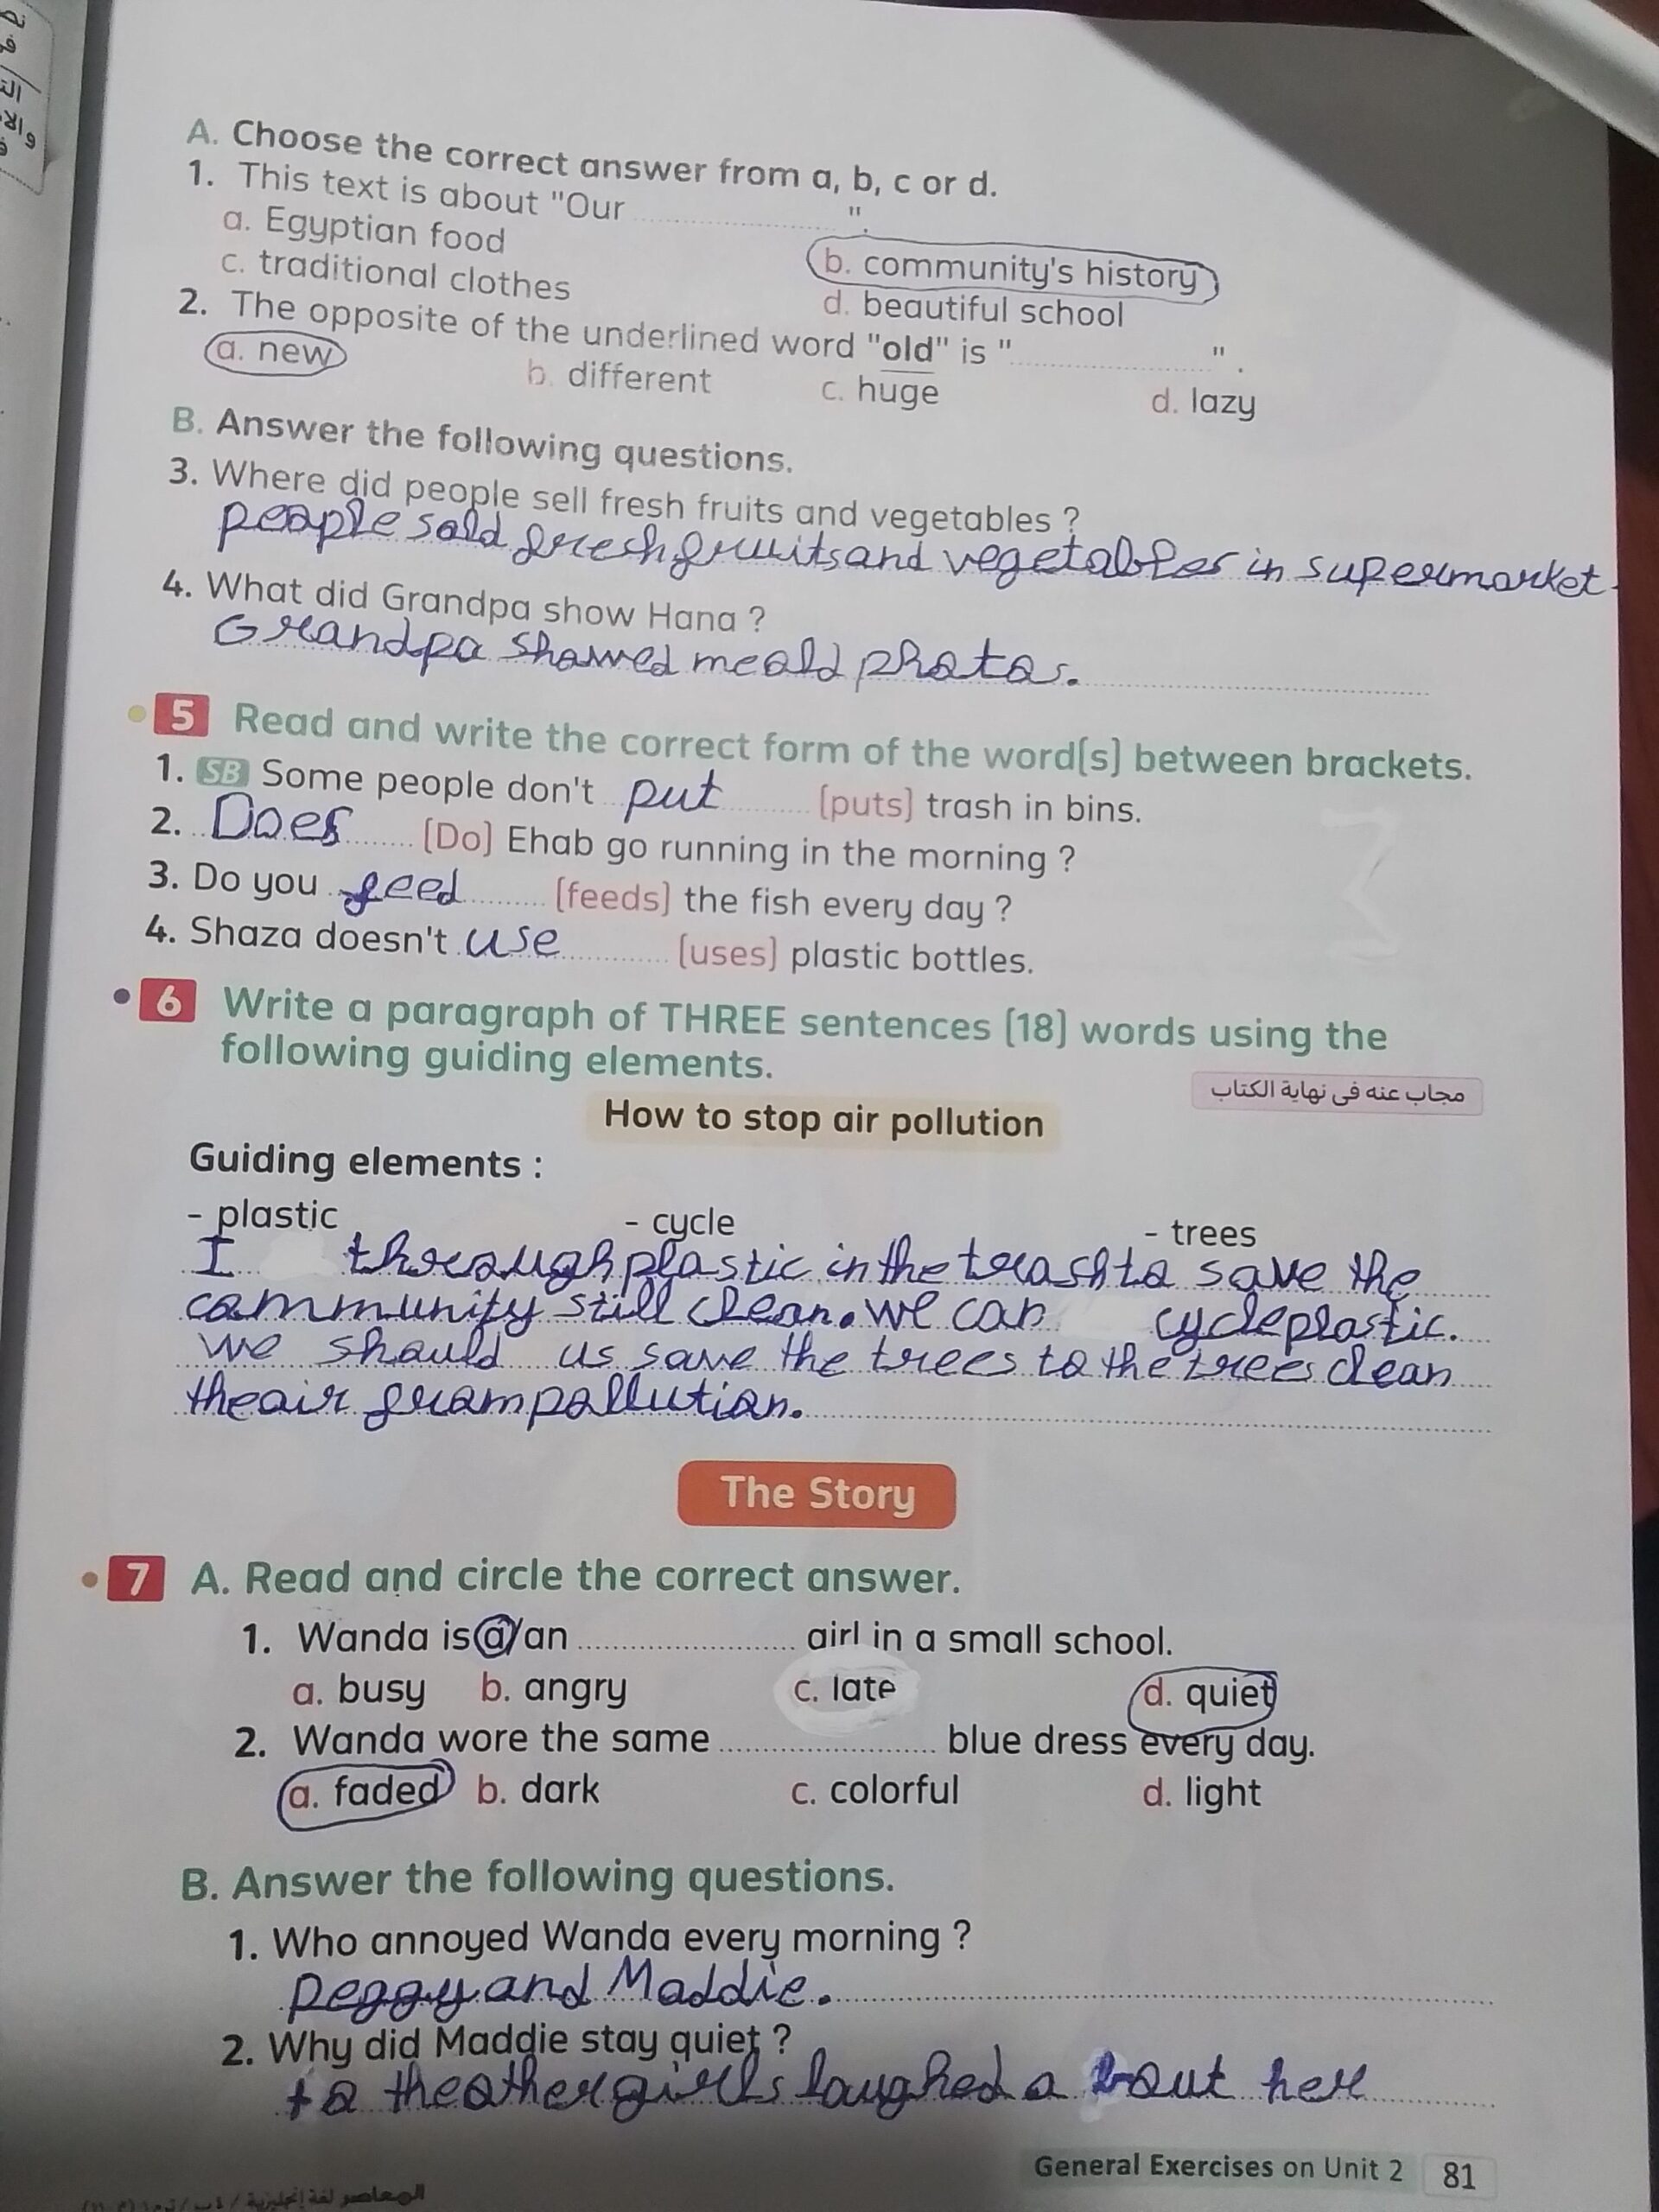 A. Choose the correct answer from a, b, c or d.
1. This text is about "Our ".
a. Egyptian food
b. community's history
c. traditional clothes
d. beautiful school
2. The opposite of the underlined word "old" is " ".
a. new b. different c. huge d. lazy
B. Answer the following questions.
3. Where did people sell fresh fruits and vegetables ?
people sold frech fruits and vegetables in supermarket.
4. What did Grandpa show Hana ?
Grandpa showed me old photos.
5 Read and write the correct form of the word(s) between brackets.
1. SB Some people don't put (puts) trash in bins.
2. Does (Do) Ehab go running in the morning ?
3. Do you feed (feeds) the fish every day ?
4. Shaza doesn't use (uses) plastic bottles.
6 Write a paragraph of THREE sentences (18) words using the
following guiding elements.
مجاب عنه فى نهاية الكتاب
How to stop air pollution
Guiding elements :
- plastic - cycle - trees
I through plastic in the trash to save the
community still clean. we can cycle plastic.
we should us save the trees to the trees clean
the air from pollution.
The Story
7 A. Read and circle the correct answer.
1. Wanda is a/an girl in a small school.
a. busy b. angry c. late d. quiet
2. Wanda wore the same blue dress every day.
a. faded b. dark c. colorful d. light
B. Answer the following questions.
1. Who annoyed Wanda every morning ?
Peggy and Maddie.
2. Why did Maddie stay quiet ?
to the other girls laughed about her
General Exercises on Unit 2 81
المعاصر لغة إنجليزية